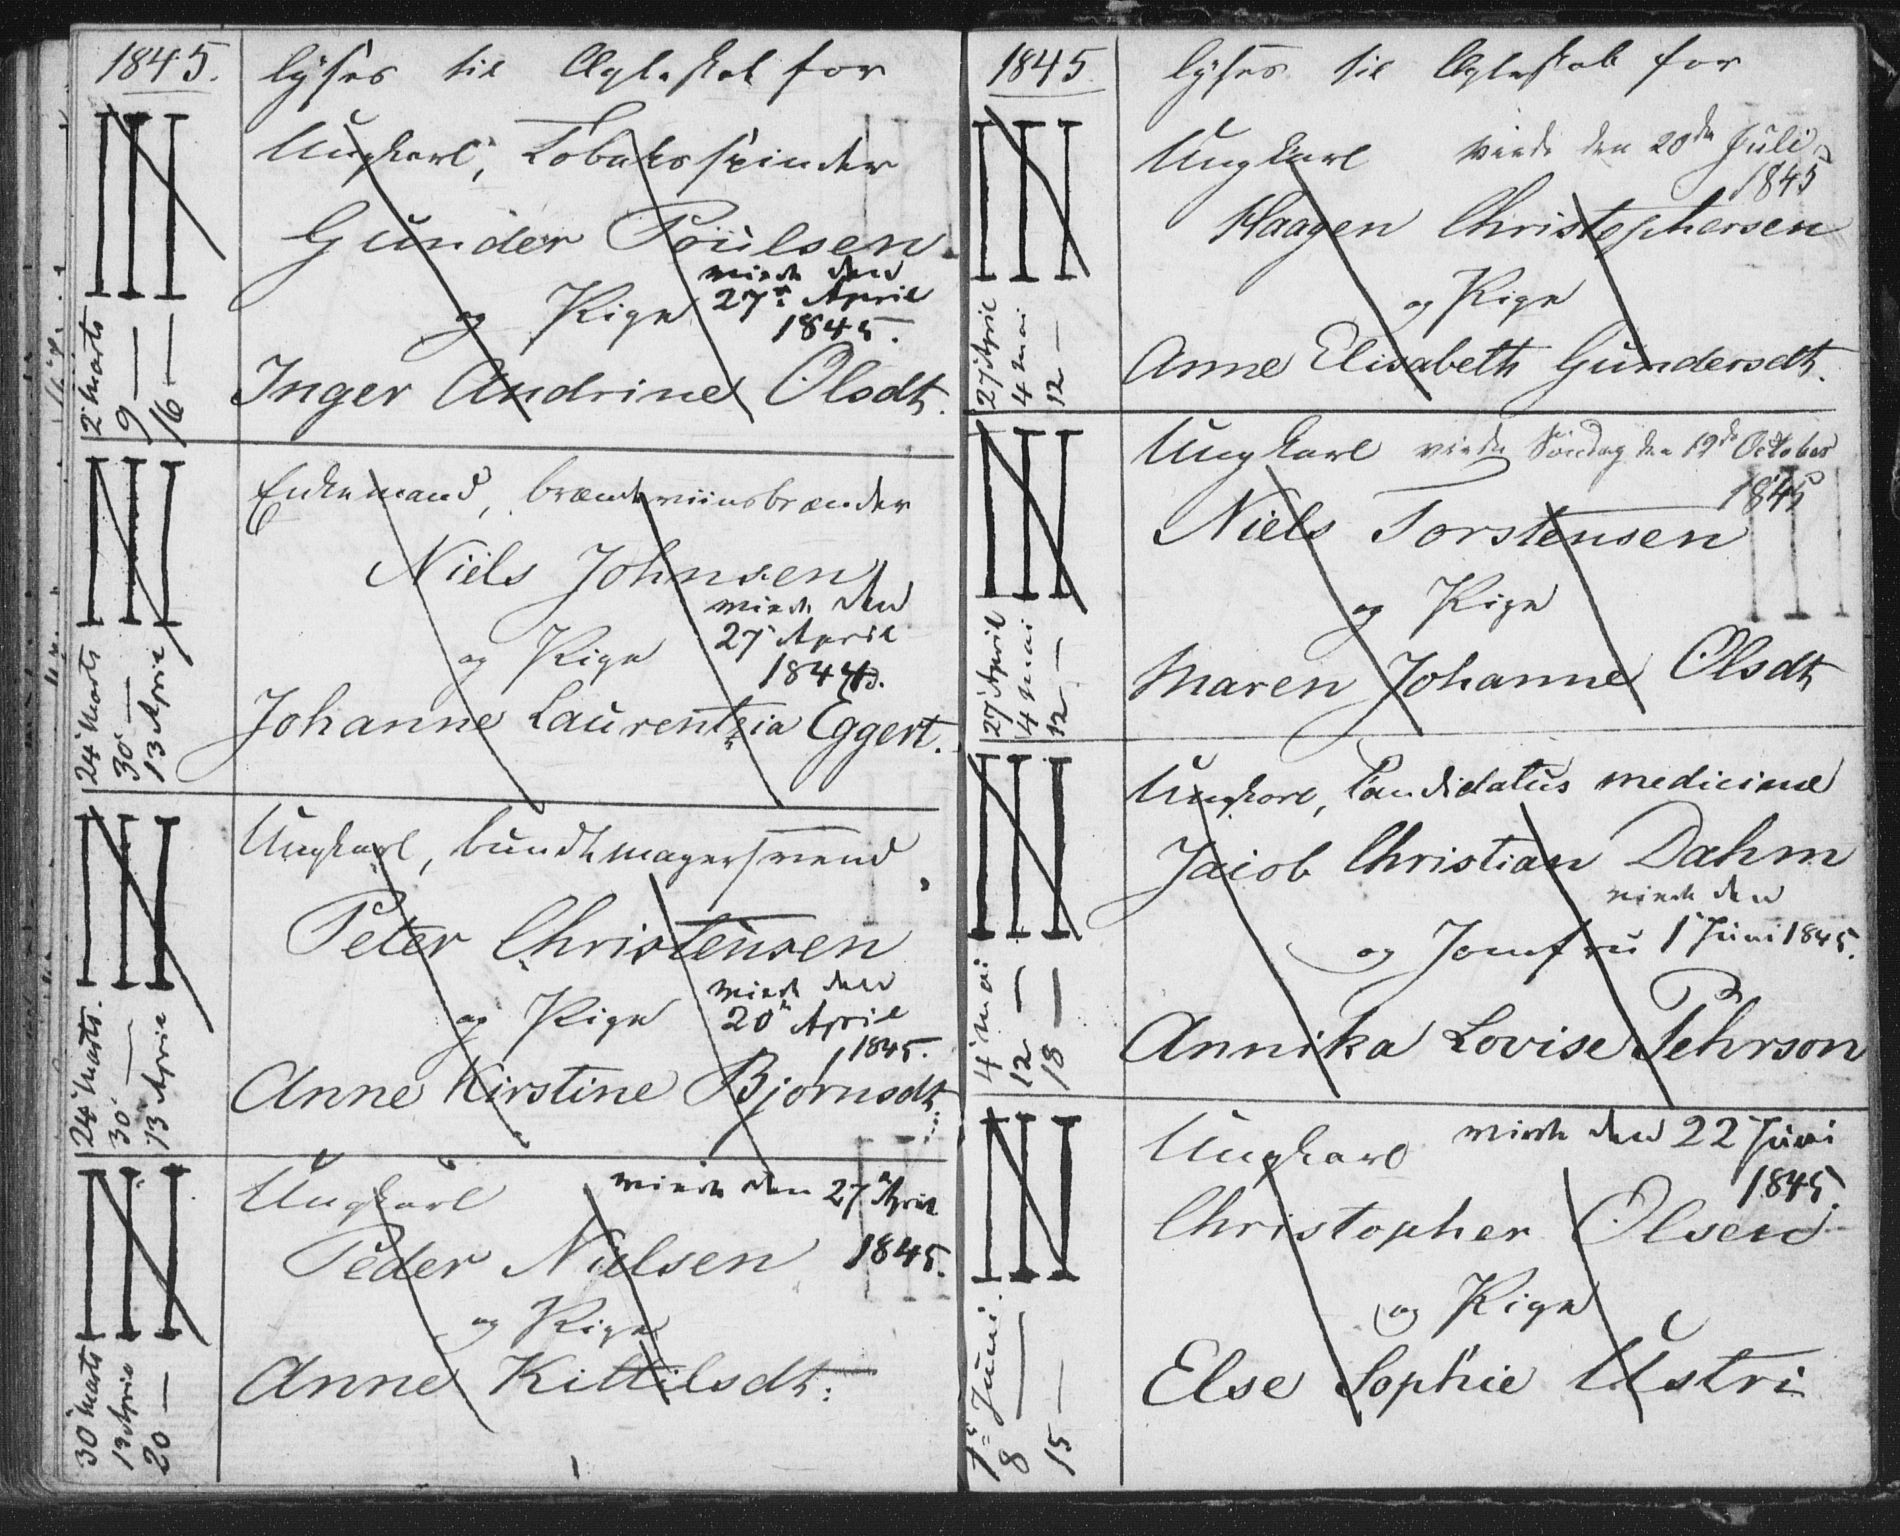 1845.
lyses til Ægteskab for
Ungkarl, Tobaksspinder
Gunder Poulsen
viede den
og Pige 27de April
1845.
Inger Andrine Olsdt.
2 Marts
9 —
16 —
Enkemand, brændeviinsbrænder
Niels Johnsen
viede den
27 April
og Pige
1845.
Johanne Laurentzia Eggert.
24 Marts
30 —
13 April
Ungkarl, bundtmagersvend
Peter Christensen
viede den
og Pige 20 April
1845.
Anne Kirstine Bjørnsdt.
24 Marts.
30 —
13 April
Ungkarl viede den 27 April
Peder Nielsen 1845.
og Pige
Anne Kittilsdt.
30 Marts
13 April
20 —
1845
lyses til Ægteskab for
Ungkarl viede den 20de Juli
1845
Haagen Christophersen
og Pige
Anne Elisabeth Gundersdt.
27 April
4 Mai
12 —
Ungkarl viede Søndag den 19de October
1845
Niels Torstensen
og Pige
Maren Johanne Olsdt
27 April
4 Mai
12 —
Ungkarl, Candidatus medicinæ
Jacob Christian Dahm
viede den
og Jomfru 1 Juni 1845.
Annika Lovise Pehrson
4 Mai
12 —
18 —
Ungkarl viede den 22 Juni
1845.
Christopher Olsen
og Pige
Else Sophie Ustri
1ste Juni.
8 —
15 —